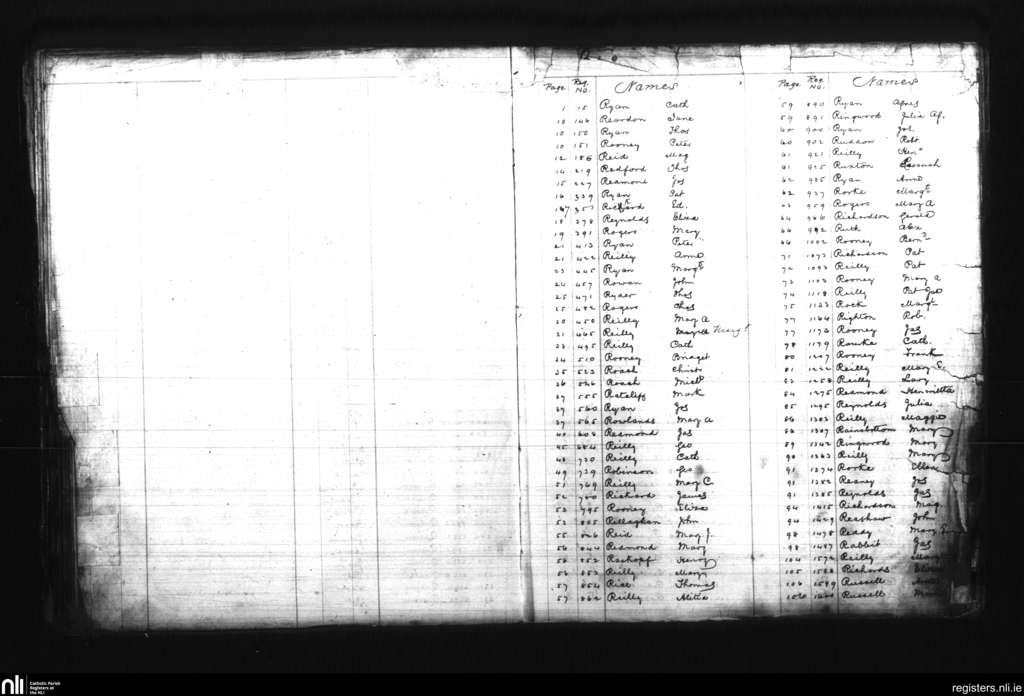 Page Reg. No. Names
1 15 Ryan Cath
10 146 Reardon Jane
10 150 Ryan Thos
10 151 Rooney Peter
12 186 Reid Mag
14 219 Redford Thos
15 227 Redmond Jos
16 339 Ryan Pat
357 Ed.
18 378 Reynolds Eliza
19 391 Rogers Mary
21 413 Ryan Peter
21 422 Reilly Anne
23 445 Ryan Margt
24 457 Rowan John
25 471 Ryder Thos
25 482 Rogers Thos
20 450 Reilly Mary A
21 465 Reilly Margt
23 495 Reilly Cath
24 510 Rooney Bridget
25 523 Roach Christ
26 Roach Michl
27 555 Ratcliff Mark
27 560 Ryan Jos
27 565 Rowlands Mary A
40 608 Redmond Jas
45 684 Reilly Geo
48 730 Reilly Cath
49 739 Robinson Geo
51 769 Reilly Mary C
52 780 Richard James
53 795 Rooney Eliza
53 805 Rellaghan John
55 826 Reid Mag J.
56 844 Redmond Mary
56 852 Henry
56 853 Reilly Mary
57 854 Rice Thomas
57 862 Reilly Alitia
Page Reg. No. Names
59 890 Ryan Agnes
59 891 Ringwood Julia Ag.
60 900 Ryan Jos.
60 902 Ruddon Robt
61 921 Reilly Henry
61 925 Ruxton
62 935 Ryan Anne
62 937 Rorke Margt
63 959 Rogers Mary A
64 966 Richardson Gerald
66 992 Ruth Alex
66 1002 Rooney Bernd
71 1073 Richardson Pat
72 1093 Reilly Pat
73 1103 Rooney Mary A
74 1118 Reilly Pat Jos
75 1133 Rock Margt
77 1164 Righton Rob.
77 1173 Rooney Jas
78 1179 Rourke Cath.
80 1207 Rooney Frank
81 1222 Reilly Mary E.
83 1258 Reilly Lucy
84 1275 Redmond Henrietta
85 1295 Reynolds Julia
86 1303 Reilly Maggie
86 1307 Rainsbottom Mary
89 1342 Ringwood Mary
90 1363 Reilly Mary
91 1374 Rorke Ellen
91 1382 Reaney Jas
91 1385 Reynolds Jas
94 1415 Richardson Mag.
94 1429 Reashaw John
98 1478 Reddy Mary
98 1487 Rabbit Jas
104 1572 Reilly Mary
105 1588 Richards Eliza
106 1599 Russell
106 1600 Russell
nli Catholic Parish Registers at the NLI
registers.nli.ie